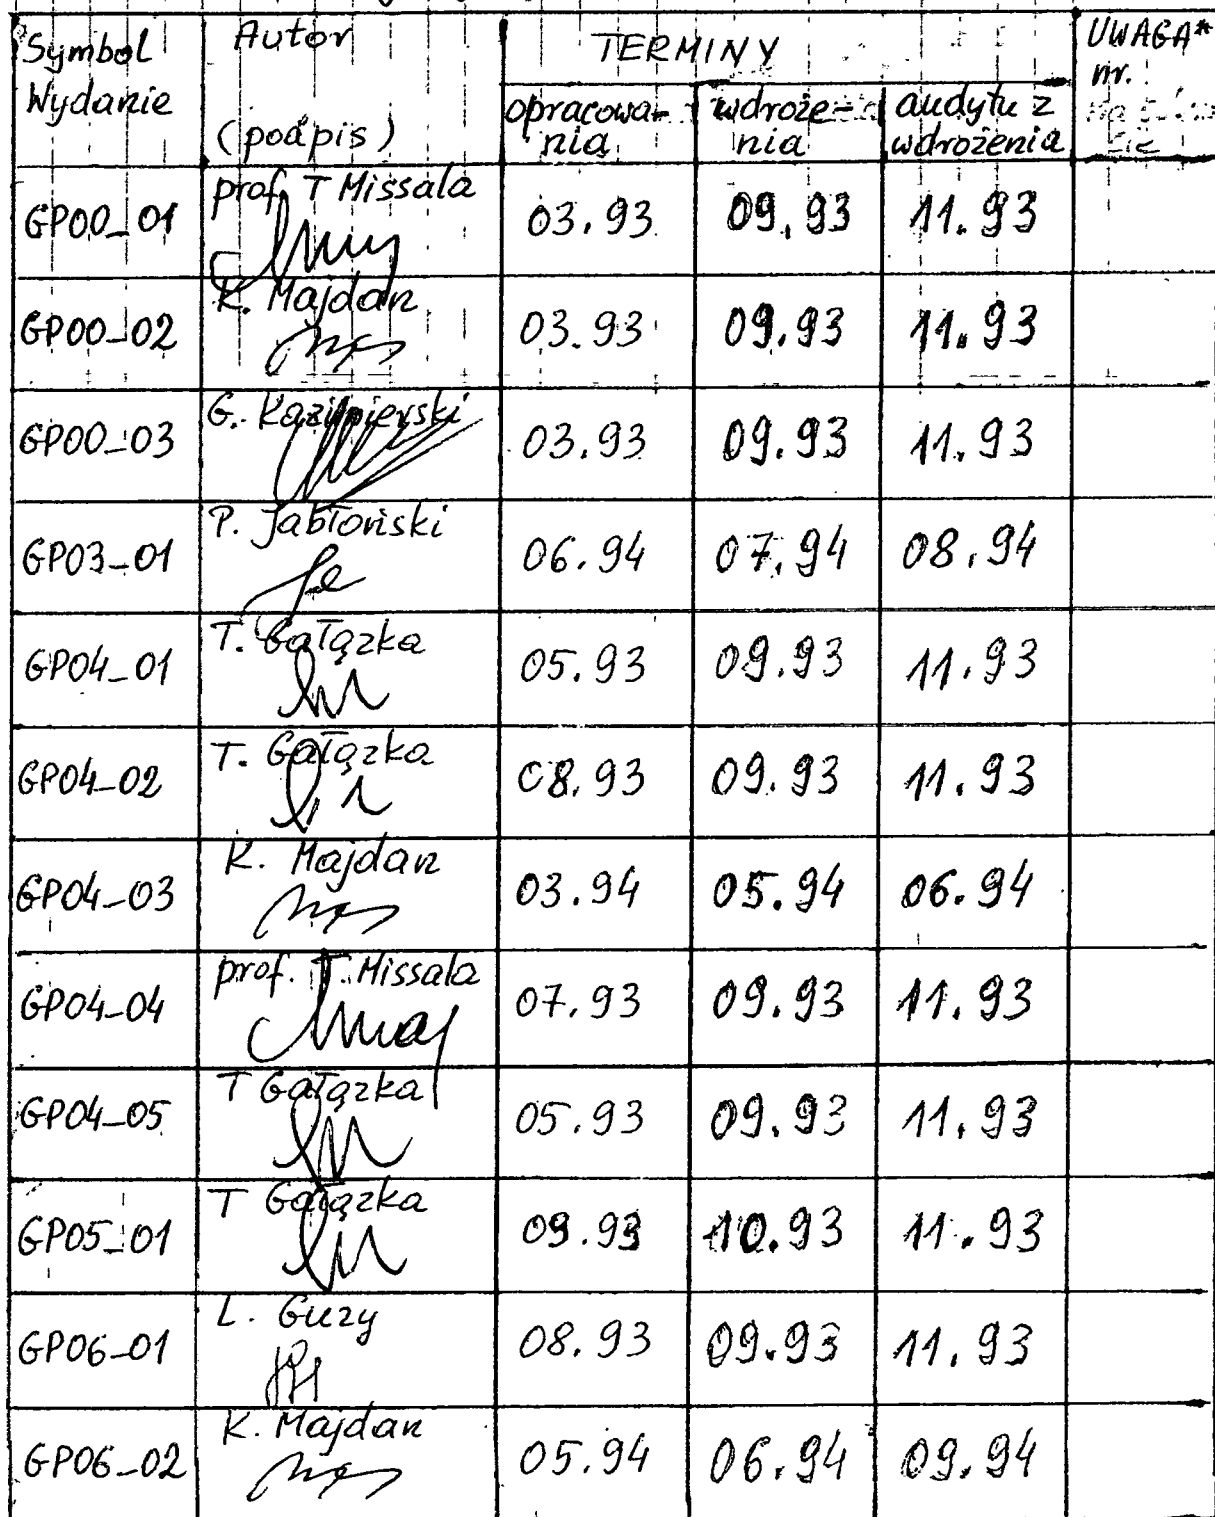 Symbol Wydanie | Autor (podpis) | TERMINY | UWAGA* nr.
opracowania | wdrożenia | audytu z wdrożenia
GP00_01 | prof. T Missala | 03.93 | 09.93 | 11.93
GP00_02 | K. Majdan | 03.93 | 09.93 | 11.93
GP00_03 | G. Kazimierski | 03.93 | 09.93 | 11.93
GP03_01 | P. Jabłoński | 06.94 | 07.94 | 08.94
GP04_01 | T. Gałązka | 05.93 | 09.93 | 11.93
GP04_02 | T. Gałązka | 08.93 | 09.93 | 11.93
GP04_03 | K. Majdan | 03.94 | 05.94 | 06.94
GP04_04 | prof. T. Missala | 07.93 | 09.93 | 11.93
GP04_05 | T Gałązka | 05.93 | 09.93 | 11.93
GP05_01 | T Gałązka | 09.93 | 10.93 | 11.93
GP06_01 | L. Guzy | 08.93 | 09.93 | 11.93
GP06_02 | K. Majdan | 05.94 | 06.94 | 09.94